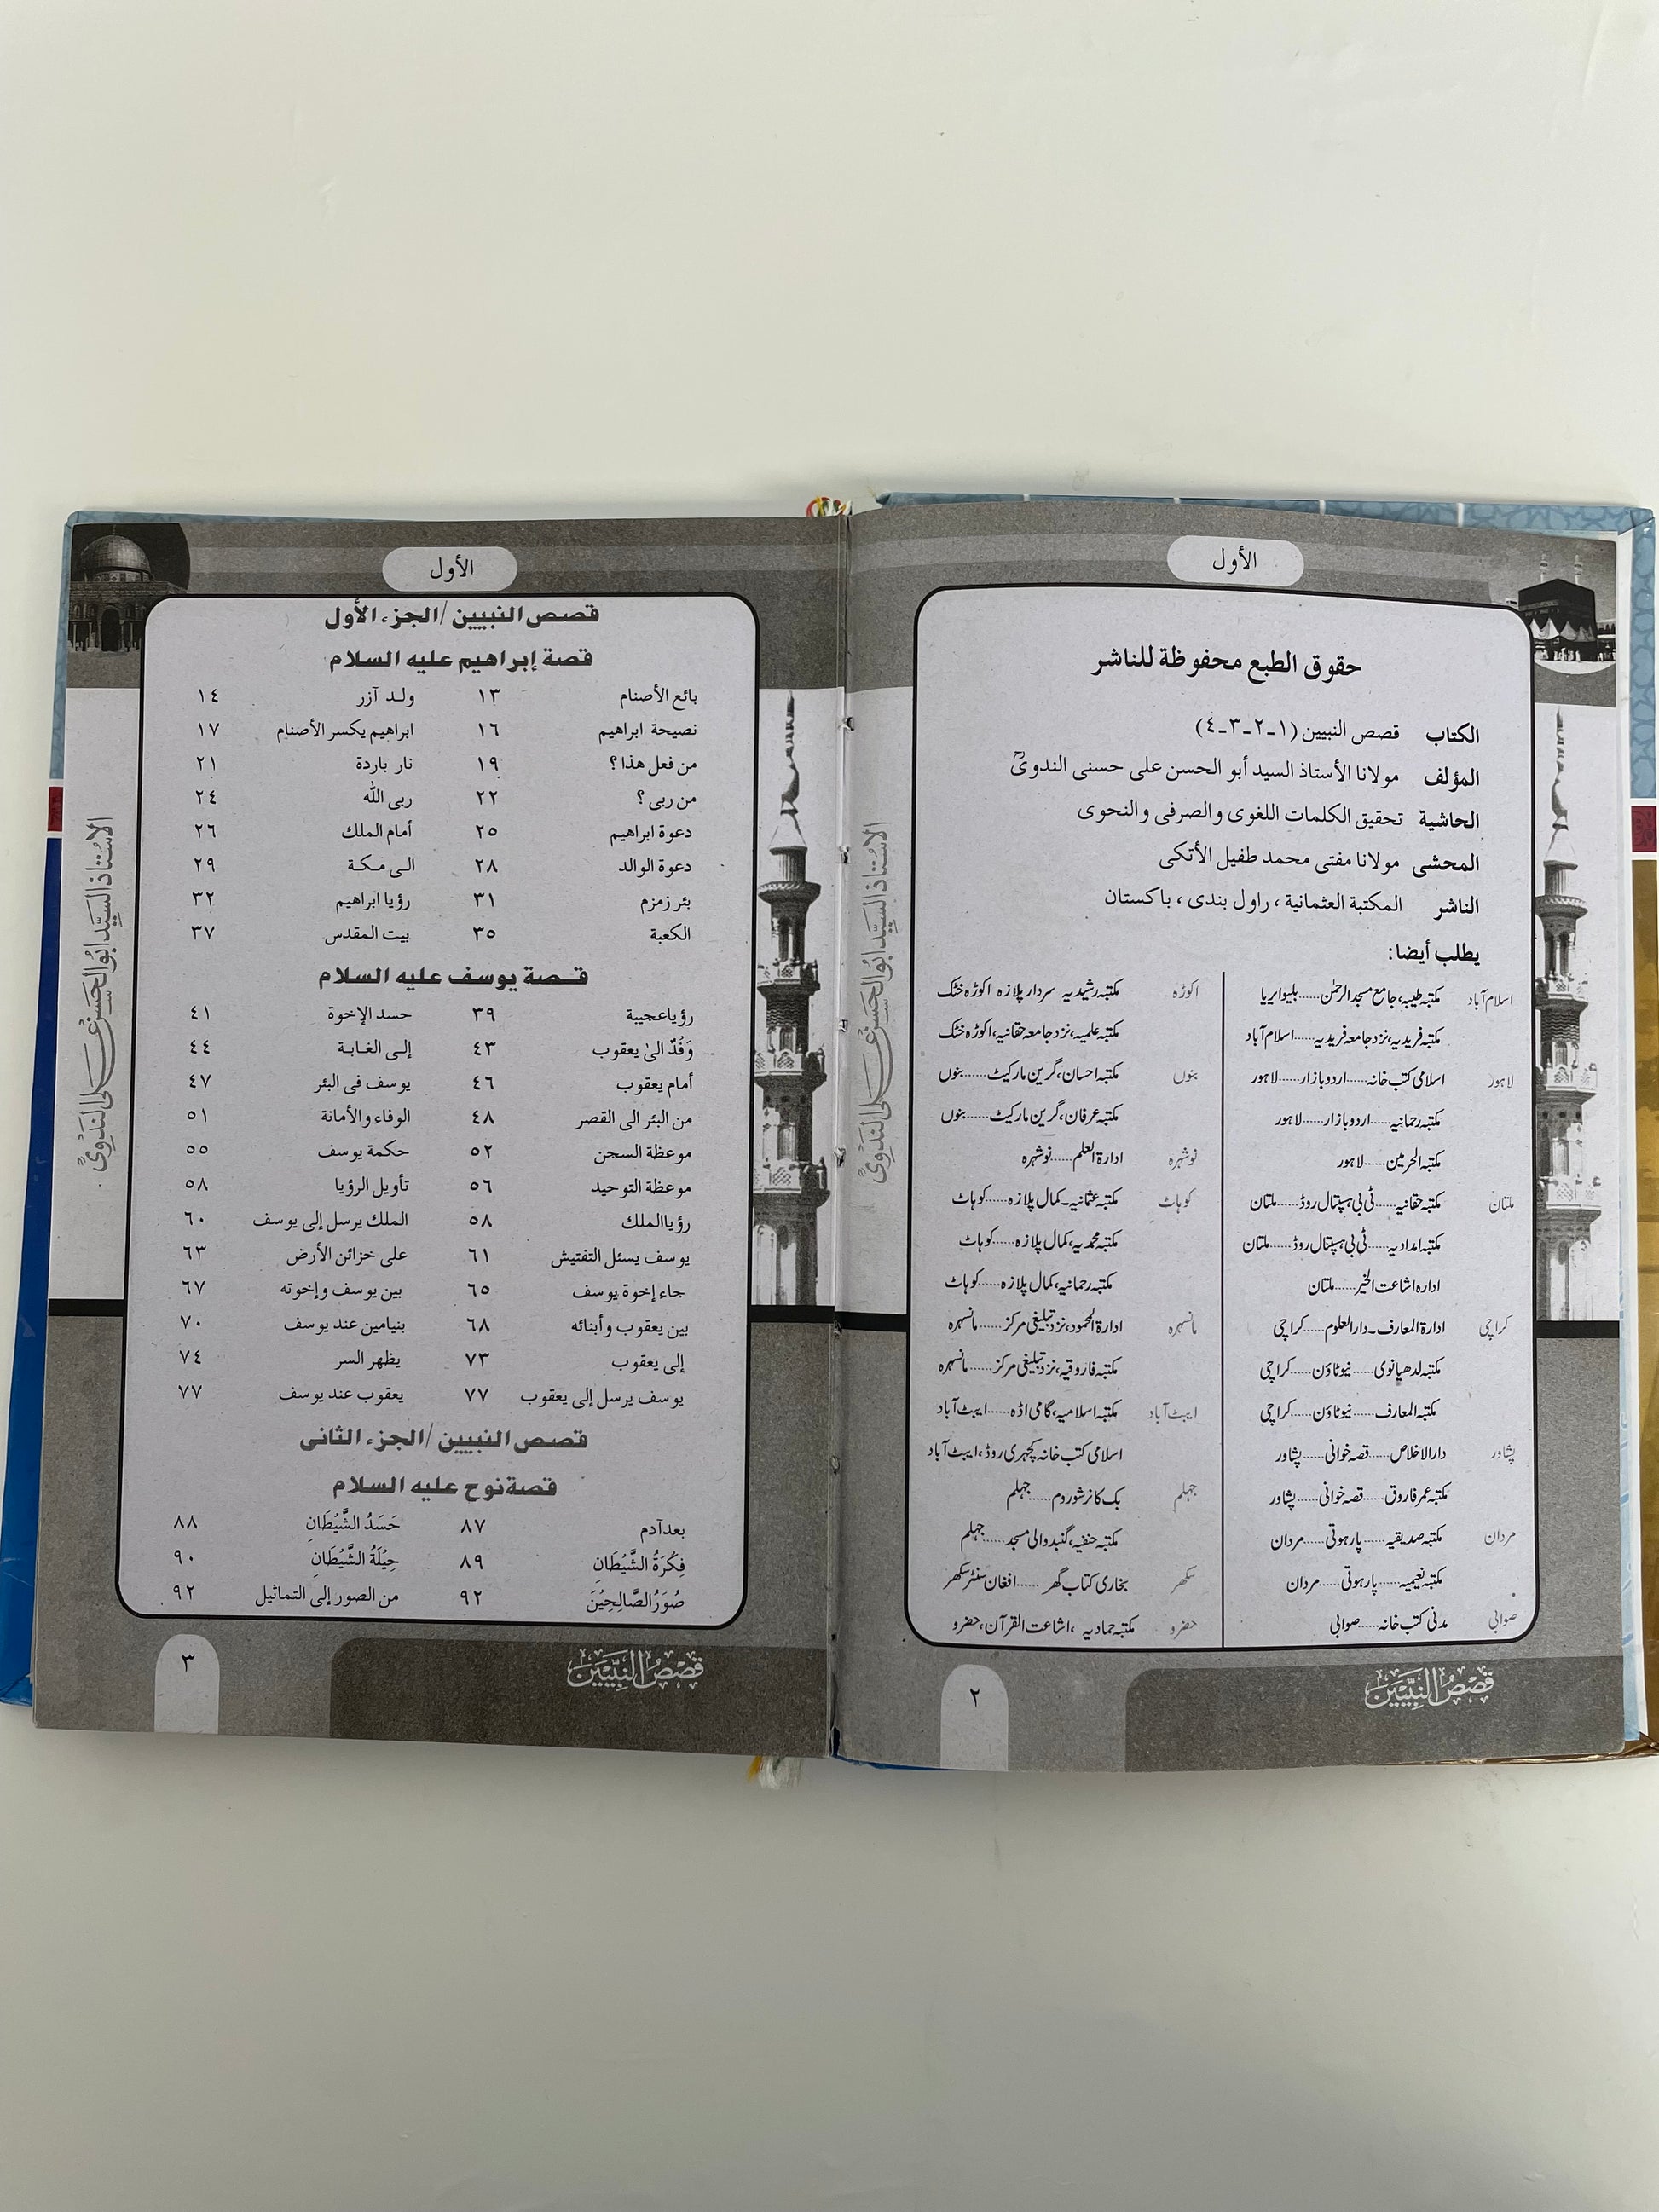 الأول
حقوق الطبع محفوظة للناشر
الكتاب قصص النبيين (١-٢-٣-٤)
المؤلف مولانا الأستاذ السيد أبو الحسن على حسنى الندوىؒ
الحاشية تحقيق الكلمات اللغوى والصرفى والنحوى
المحشى مولانا مفتى محمد طفيل الأتكى
الناشر المكتبة العثمانية ، راول بندى ، باكستان
يطلب أيضا:
اسلام آباد مکتبہ طیبہ، جامع مسجد الرحمٰن......بلیو ایریا
مکتبہ فریدیہ، نزد جامعہ فریدیہ......اسلام آباد
لاہور اسلامی کتب خانہ......اردو بازار......لاہور
مکتبہ رحمانیہ......اردو بازار......لاہور
مکتبہ الحرمین......لاہور
ملتان مکتبہ حقانیہ......ٹی بی ہسپتال روڈ......ملتان
مکتبہ امدادیہ......ٹی بی ہسپتال روڈ......ملتان
ادارہ اشاعت الخیر......ملتان
کراچی ادارۃ المعارف۔دارالعلوم......کراچی
مکتبہ لدھیانوی......نیو ٹاؤن......کراچی
مکتبہ المعارف......نیو ٹاؤن......کراچی
پشاور دارالاخلاص......قصہ خوانی......پشاور
مکتبہ عمر فاروق......قصہ خوانی......پشاور
مردان مکتبہ صدیقیہ......پار ہوتی......مردان
مکتبہ نعیمیہ......پار ہوتی......مردان
صوابی مدنی کتب خانہ......صوابی
اکوڑہ مکتبہ رشیدیہ سردار پلازہ اکوڑہ خٹک
مکتبہ علمیہ، نزد جامعہ حقانیہ، اکوڑہ خٹک
بنوں مکتبہ احسان، گرین مارکیٹ......بنوں
مکتبہ عرفان، گرین مارکیٹ......بنوں
نوشہرہ ادارۃ العلم......نوشہرہ
کوہاٹ مکتبہ عثمانیہ۔کمال پلازہ......کوہاٹ
مکتبہ محمدیہ، کمال پلازہ......کوہاٹ
مکتبہ رحمانیہ، کمال پلازہ......کوہاٹ
مانسہرہ ادارۃ الحمود، نزد تبلیغی مرکز......مانسہرہ
مکتبہ فاروقیہ، نزد تبلیغی مرکز......مانسہرہ
ایبٹ آباد مکتبہ اسلامیہ، گامی اڈہ......ایبٹ آباد
اسلامی کتب خانہ کچہری روڈ، ایبٹ آباد
جہلم بک کارنر شوروم......جہلم
مکتبہ حنفیہ، گنبد والی مسجد......جہلم
سکھر بخاری کتاب گھر......افغان سنٹر سکھر
حضرو مکتبہ حمادیہ ، اشاعت القرآن، حضرو
الاستاذ السيّد ابو الحسن على الندوىؒ
قصص النبيين
٢
الأول
قصص النبيين /الجزء الأول
قصة إبراهيم عليه السلام
بائع الأصنام ١٣ ولد آزر ١٤
نصيحة ابراهيم ١٦ ابراهيم يكسر الأصنام ١٧
من فعل هذا؟ ١٩ نار باردة ٢١
من ربى ؟ ٢٢ ربى الله ٢٤
دعوة ابراهيم ٢٥ أمام الملك ٢٦
دعوة الوالد ٢٨ الى مكة ٢٩
بئر زمزم ٣١ رؤيا ابراهيم ٣٢
الكعبة ٣٥ بيت المقدس ٣٧
قصة يوسف عليه السلام
رؤيا عجيبة ٣٩ حسد الإخوة ٤١
وَفْدٌ الىٰ يعقوب ٤٣ إلى الغابة ٤٤
أمام يعقوب ٤٦ يوسف فى البئر ٤٧
من البئر الى القصر ٤٨ الوفاء والأمانة ٥١
موعظة السجن ٥٢ حكمة يوسف ٥٥
موعظة التوحيد ٥٦ تأويل الرؤيا ٥٨
رؤيا الملك ٥٨ الملك يرسل إلى يوسف ٦٠
يوسف يسئل التفتيش ٦١ على خزائن الأرض ٦٣
جاء إخوة يوسف ٦٥ بين يوسف وإخوته ٦٧
بين يعقوب وأبنائه ٦٨ بنيامين عند يوسف ٧٠
إلى يعقوب ٧٣ يظهر السر ٧٤
يوسف يرسل إلى يعقوب ٧٧ يعقوب عند يوسف ٧٧
قصص النبيين /الجزء الثانى
قصة نوح عليه السلام
بعد آدم ٨٧ حَسَدُ الشَّيْطَانِ ٨٨
فِكْرَةُ الشَّيْطَانِ ٨٩ حِيْلَةُ الشَّيْطَانِ ٩٠
صُوَرُ الصَّالِحِيْنَ ٩٢ من الصور إلى التماثيل ٩٢
الاستاذ السيّد ابو الحسن على الندوىؒ
قصص النبيين
٣